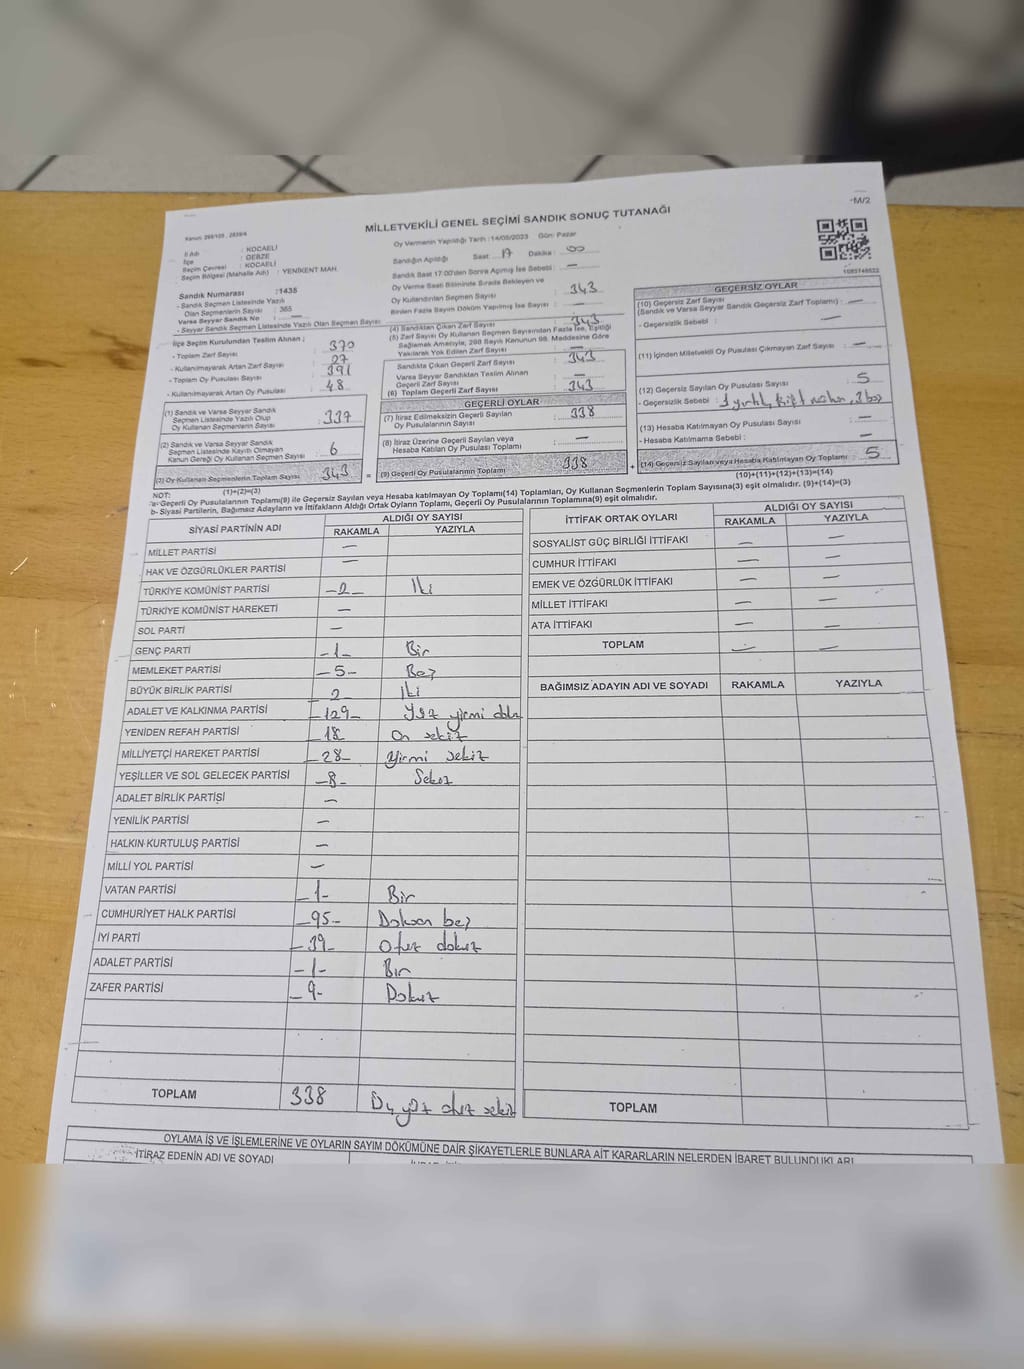 -M/2
MİLLETVEKİLİ GENEL SEÇİMİ SANDIK SONUÇ TUTANAĞI
Oy Vermenin Yapıldığı Tarih :14/05/2023 Gün: Pazar
İl Adı : KOCAELİ
İlçe : GEBZE
Seçim Çevresi : KOCAELİ
Seçim Bölgesi (Mahalle Adı) : YENİKENT MAH.
Sandık Numarası :1435
- Sandık Seçmen Listesinde Yazılı
Olan Seçmenlerin Sayısı : 365
Varsa Seyyar Sandık No : —
- Seyyar Sandık Seçmen Listesinde Yazılı Olan Seçmen Sayısı
İlçe Seçim Kurulundan Teslim Alınan ;
- Toplam Zarf Sayısı : 370
- Kullanılmayarak Artan Zarf Sayısı : 27
- Toplam Oy Pusulası Sayısı : 391
- Kullanılmayarak Artan Oy Pusulası : 48
(1) Sandık ve Varsa Seyyar Sandık
Seçmen Listesinde Yazılı Olup
Oy Kullanan Seçmenlerin Sayısı : 337
(2) Sandık ve Varsa Seyyar Sandık
Seçmen Listesinde Kayıtlı Olmayan
Kanun Gereği Oy Kullanan Seçmen Sayısı : 6
(3) Oy Kullanan Seçmenlerin Toplam Sayısı : 343
(1)+(2)=(3)
Sandığın Açıldığı Saat : 17 Dakika : 00
Sandık Saat 17:00'den Sonra Açılmış İse Sebebi : —
Oy Verme Saati Bitiminde Sırada Bekleyen ve
Oy Kullandırılan Seçmen Sayısı : 343
Birden Fazla Sayım Döküm Yapılmış İse Sayısı : —
(4) Sandıktan Çıkan Zarf Sayısı : 343
(5) Zarf Sayısı Oy Kullanan Seçmen Sayısından Fazla İse, Eşitliği
Sağlamak Amacıyla, 298 Sayılı Kanunun 98. Maddesine Göre
Yakılarak Yok Edilen Zarf Sayısı : —
Sandıkta Çıkan Geçerli Zarf Sayısı : 343
Varsa Seyyar Sandıktan Teslim Alınan
Geçerli Zarf Sayısı : —
(6) Toplam Geçerli Zarf Sayısı : 343
GEÇERLİ OYLAR
(7) İtiraz Edilmeksizin Geçerli Sayılan
Oy Pusulalarının Sayısı : 338
(8) İtiraz Üzerine Geçerli Sayılan veya
Hesaba Katılan Oy Pusulası Toplamı : —
= (9) Geçerli Oy Pusulalarının Toplamı : 338 +
GEÇERSİZ OYLAR
(10) Geçersiz Zarf Sayısı
(Sandık ve Varsa Seyyar Sandık Geçersiz Zarf Toplamı) : —
- Geçersizlik Sebebi : —
(11) İçinden Milletvekili Oy Pusulası Çıkmayan Zarf Sayısı : —
(12) Geçersiz Sayılan Oy Pusulası Sayısı : 5
- Geçersizlik Sebebi : 1 yırtık,
(13) Hesaba Katılmayan Oy Pusulası Sayısı : —
- Hesaba Katılmama Sebebi : —
(14) Geçersiz Sayılan veya Hesaba Katılmayan Oy Toplamı : 5
(10)+(11)+(12)+(13)=(14)
NOT:
a- Geçerli Oy Pusulalarının Toplamı(9) ile Geçersiz Sayılan veya Hesaba katılmayan Oy Toplamı(14) Toplamları, Oy Kullanan Seçmenlerin Toplam Sayısına(3) eşit olmalıdır. (9)+(14)=(3)
b- Siyasi Partilerin, Bağımsız Adayların ve İttifakların Aldığı Ortak Oyların Toplamı, Geçerli Oy Pusulalarının Toplamına(9) eşit olmalıdır.
SİYASİ PARTİNİN ADI ALDIĞI OY SAYISI
RAKAMLA YAZIYLA
MİLLET PARTİSİ —
HAK VE ÖZGÜRLÜKLER PARTİSİ —
TÜRKİYE KOMÜNİST PARTİSİ -2- İki
TÜRKİYE KOMÜNİST HAREKETİ —
SOL PARTİ —
GENÇ PARTİ -1- Bir
MEMLEKET PARTİSİ -5- Beş
BÜYÜK BİRLİK PARTİSİ -2- İki
ADALET VE KALKINMA PARTİSİ -129- Yüz yirmi dokuz
YENİDEN REFAH PARTİSİ -18- On sekiz
MİLLİYETÇİ HAREKET PARTİSİ -28- Yirmi sekiz
YEŞİLLER VE SOL GELECEK PARTİSİ -8- Sekiz
ADALET BİRLİK PARTİSİ —
YENİLİK PARTİSİ —
HALKIN KURTULUŞ PARTİSİ —
MİLLİ YOL PARTİSİ —
VATAN PARTİSİ -1- Bir
CUMHURİYET HALK PARTİSİ -95- Doksan beş
İYİ PARTİ -39- Otuz dokuz
ADALET PARTİSİ -1- Bir
ZAFER PARTİSİ -9- Dokuz
TOPLAM 338 Üç yüz otuz sekiz
İTTİFAK ORTAK OYLARI ALDIĞI OY SAYISI
RAKAMLA YAZIYLA
SOSYALİST GÜÇ BİRLİĞİ İTTİFAKI — —
CUMHUR İTTİFAKI — —
EMEK VE ÖZGÜRLÜK İTTİFAKI — —
MİLLET İTTİFAKI — —
ATA İTTİFAKI — —
TOPLAM — —
BAĞIMSIZ ADAYIN ADI VE SOYADI RAKAMLA YAZIYLA
TOPLAM
OYLAMA İŞ VE İŞLEMLERİNE VE OYLARIN SAYIM DÖKÜMÜNE DAİR ŞİKAYETLERLE BUNLARA AİT KARARLARIN NELERDEN İBARET BULUNDUKLARI
İTİRAZ EDENİN ADI VE SOYADI